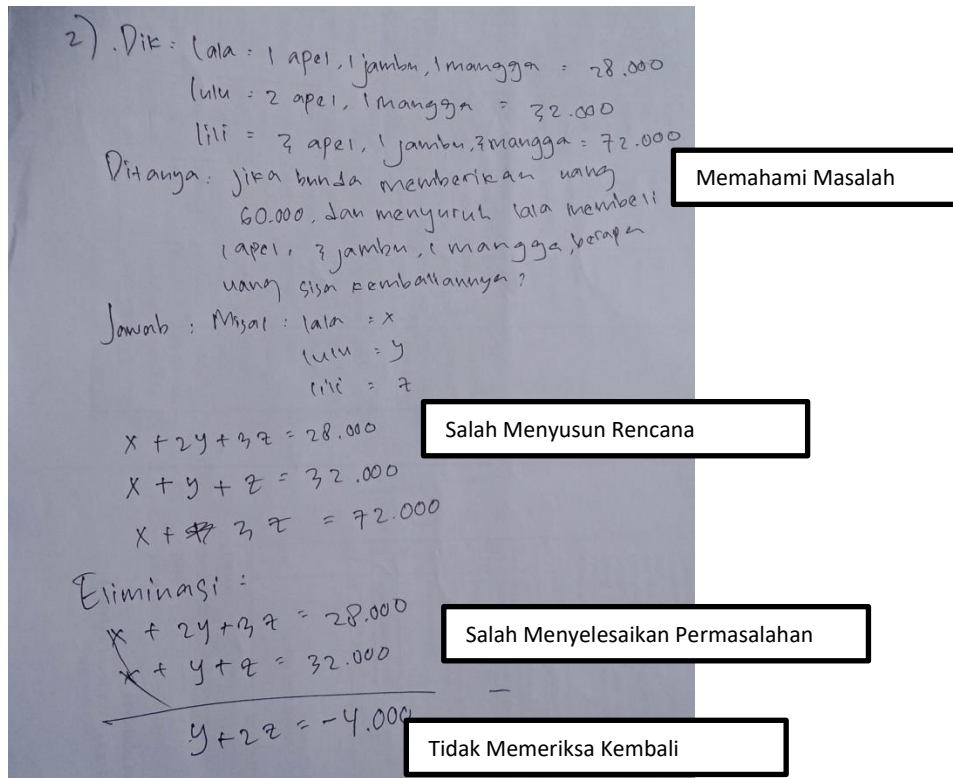 2). Dik : Lala : 1 apel, 1 jambu, 1 mangga = 28.000
lulu : 2 apel, 1 mangga = 32.000
lili = 3 apel, 1 jambu, 3 mangga = 72.000
Ditanya : Jika bunda memberikan uang
60.000, dan menyuruh lala membeli
1 apel, 3 jambu, 1 mangga, berapa
uang sisa kembaliannya?
Memahami Masalah
Jawab : Misal : lala = x
lulu = y
lili = z
x + 2y + 3z = 28.000
Salah Menyusun Rencana
x + y + z = 32.000
x + 3z = 72.000
Eliminasi :
x + 2y + 3z = 28.000
x + y + z = 32.000
Salah Menyelesaikan Permasalahan
y + 2z = -4.000
Tidak Memeriksa Kembali